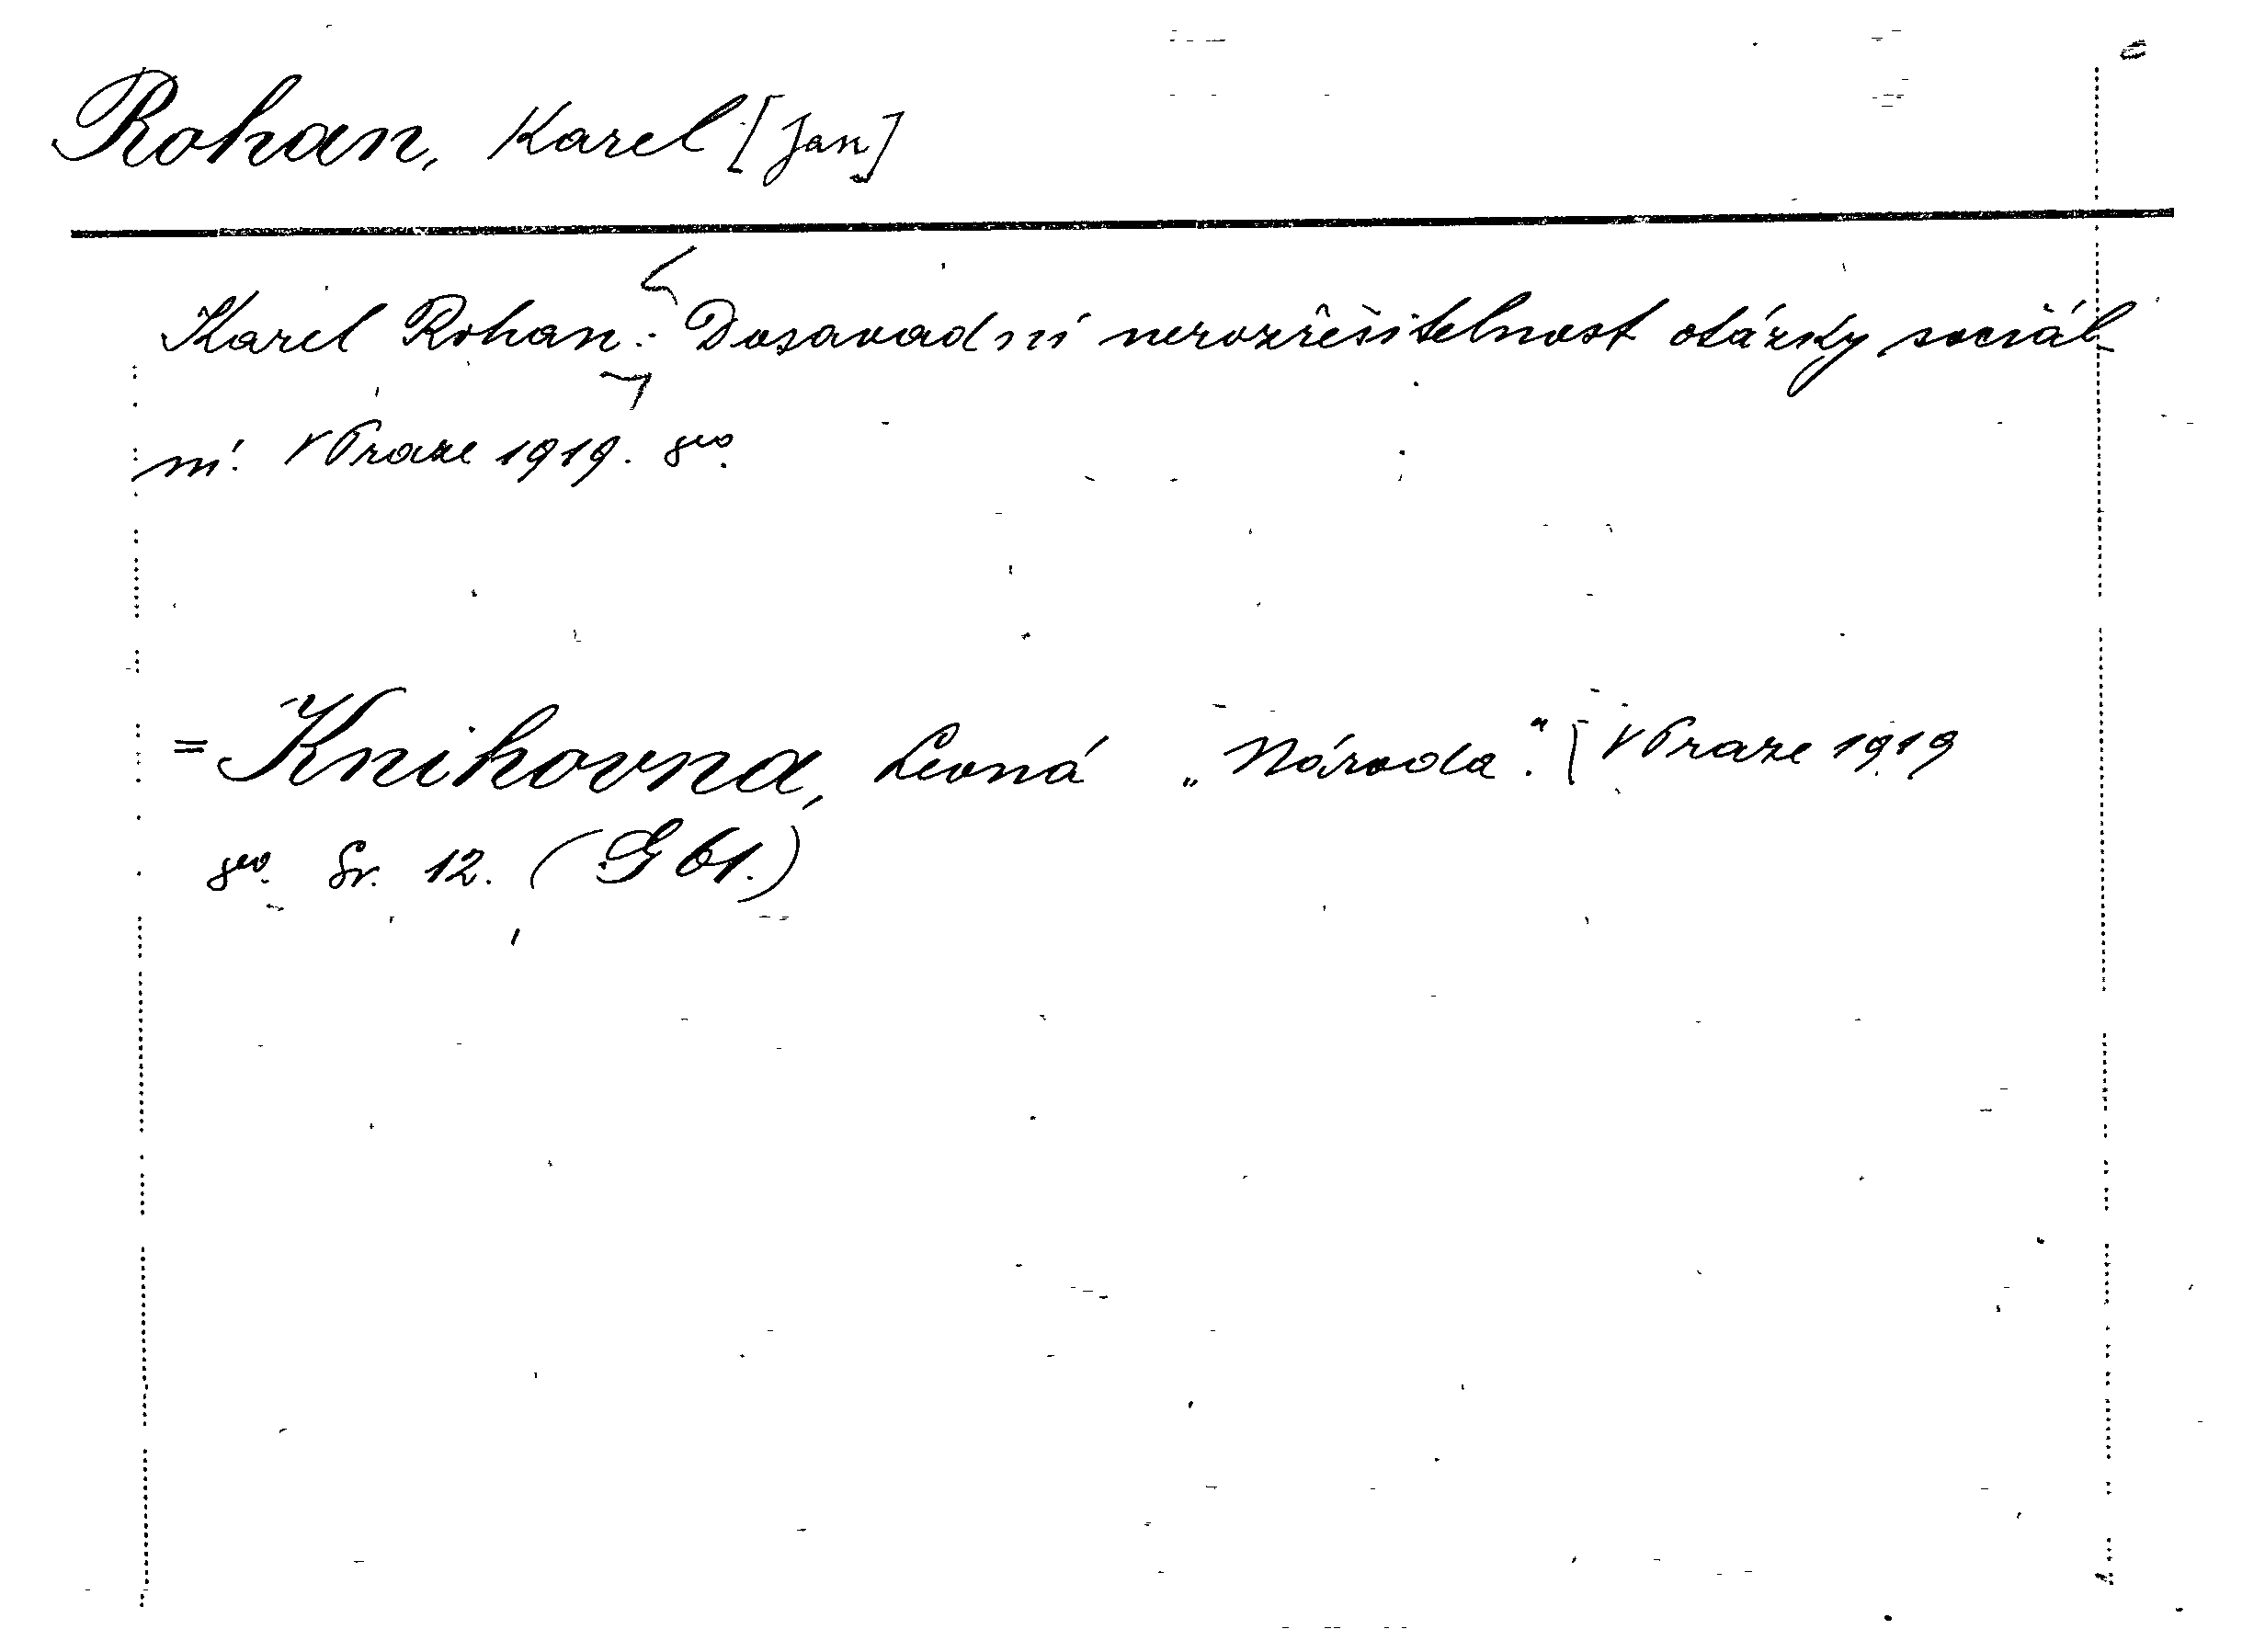 Rohan, Karel [Jan]
Karel Rohan: Dosavadní nerozřešitelnost otázky sociál-
ní. V Praze 1919. 8vo.
= Knihovna, Levná „Národa“. [V Praze 1919
8vo. Sv. 12. (G 61.)